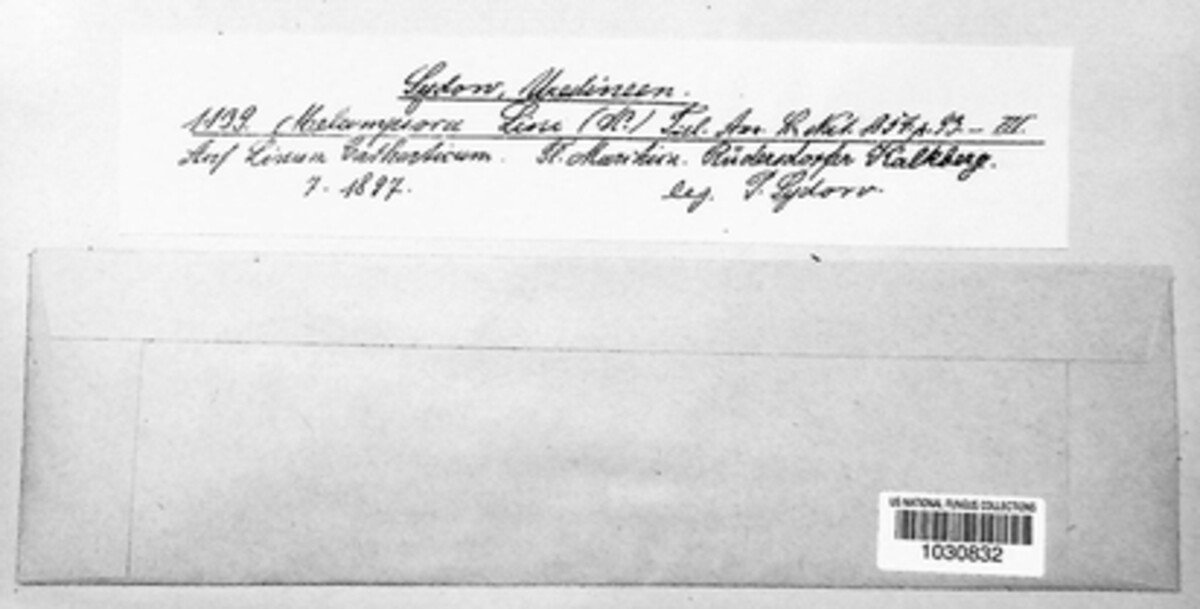 Sydow, Uredineen.
1139. Melampsora Lini (P.) Tul. An. Sc. Nat. p. 93. – III.
Auf Linum Catharticum. Fl. Marchica. Rüdersdorfer Kalkberg.
7. 1897. leg. P. Sydow.
US NATIONAL FUNGUS COLLECTIONS
1030832